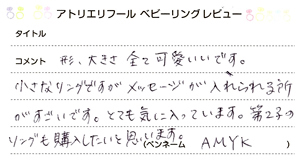 アトリエリフール ベビーリングレビュー
タイトル
コメント 形、大きさ 全て可愛いいです。
小さなリングですがメッセージが入れられる所
がすごいです。とても気に入っています。第2子の
リングも購入したいと思います。
(ペンネーム AMYK )